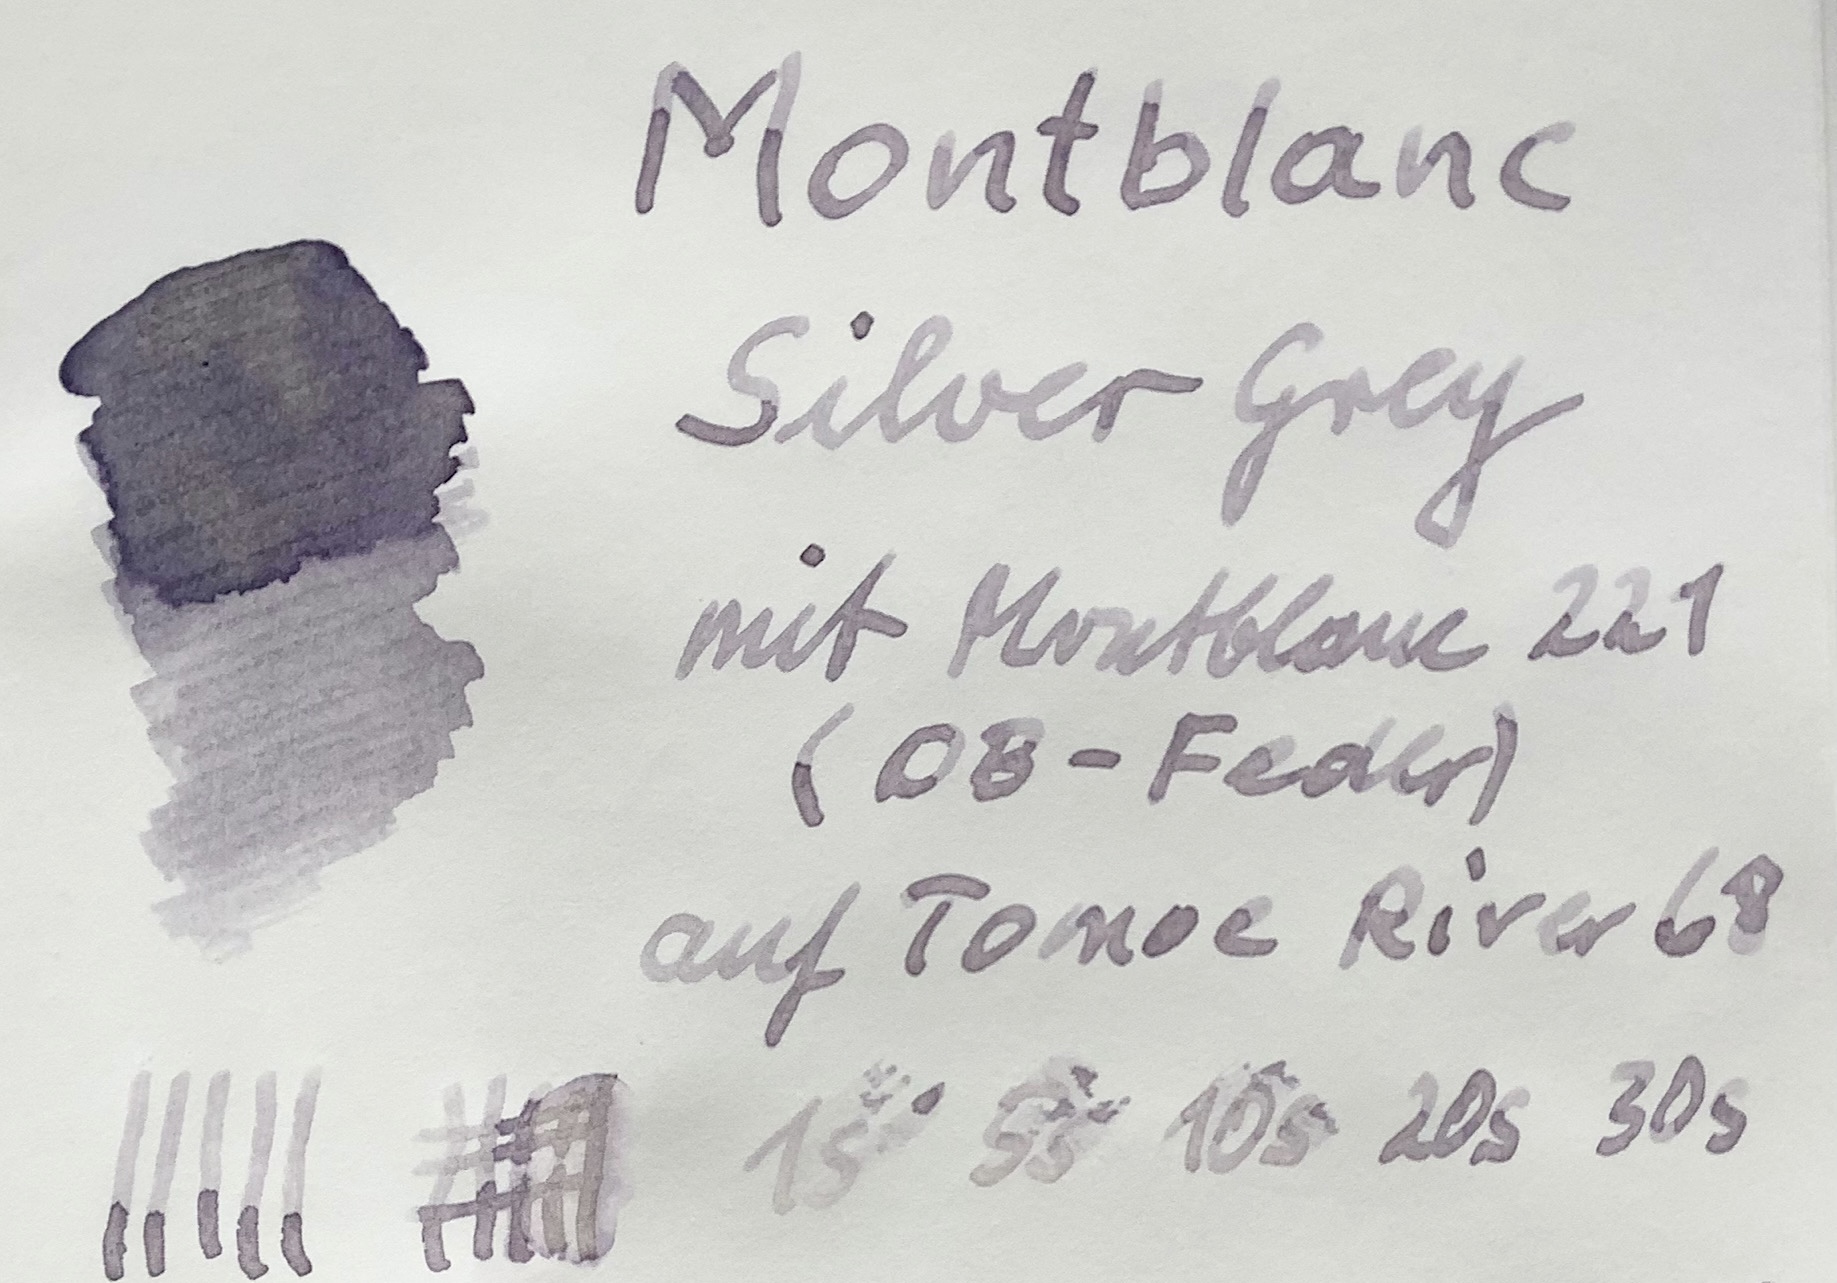 Montblanc
Silver Grey
mit Montblanc 221
(OB-Feder)
auf Tomoe River 68
1s 5s 10s 20s 30s